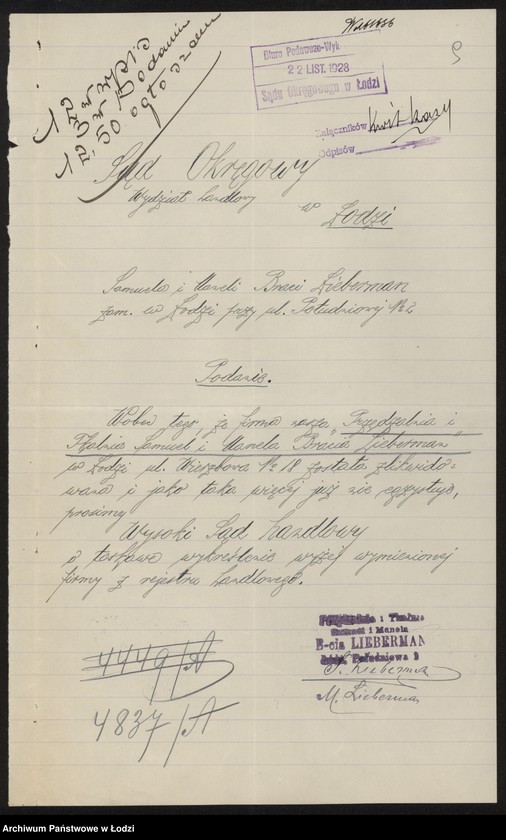 9
Biuro Podawczo-Wyk
22 LIST. 1928
Sądu Okręgowego w Łodzi
Załączników kwit kasy
Odpisów
Sąd Okręgowy
Wydział handlowy
w Łodzi
Samuela i Maneli Braci Lieberman
zam. w Łodzi przy ul. Południowej № 2
Podanie.
Wobec tego, że firma nasza „Przędzalnia i
Tkalnia Samuel i Manela Bracia Lieberman"
w Łodzi ul. Wierzbowa № 18 została zlikwido=
wana i jako taka więcej już nie egzystuje,
prosimy
Wysoki Sąd handlowy
o łaskawe wykreślenie wyżej wymienionej
firmy z rejestru handlowego.
Przędzalnia i Tkalnia
Samuel i Manela
B-cia LIEBERMAN
Łódź, Południowa
S. Lieberman
M. Lieberman
4449/A
4837/A
Archiwum Państwowe w Łodzi